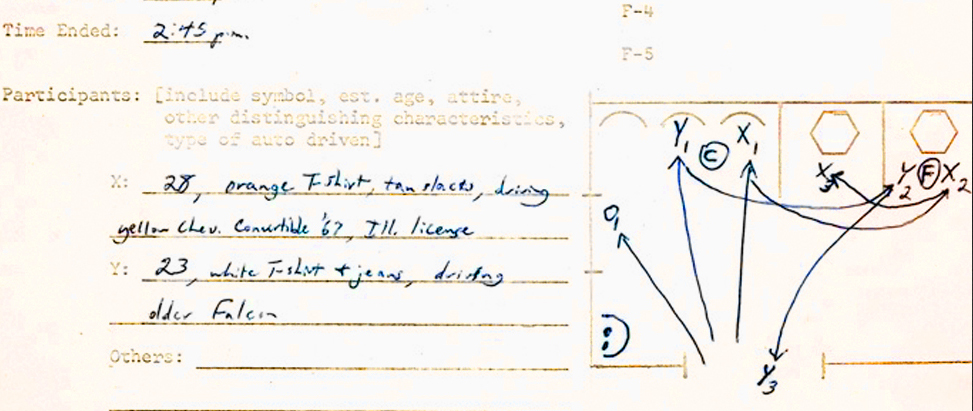 F-4
Time Ended: 2:45 p.m.
F-5
Participants: [include symbol, est. age, attire,
other distinguishing characteristics,
type of auto driven]
X: 28, orange T-shirt, tan slacks, driving
yellow Chev. Convertible '67, Ill. license
Y: 23, white T-shirt + jeans, driving
older Falcon
Others:
Y1 C X1 X3 Y2 F X2
O1
Y3